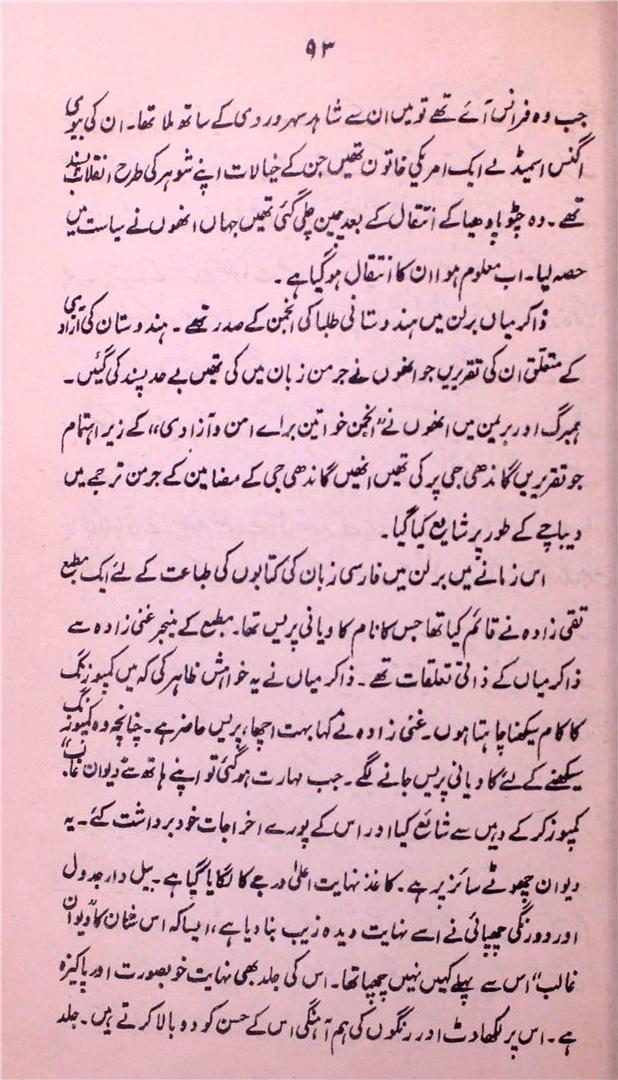 ۹۳
جب وہ فرانس آئے تھے تو میں ان سے شاہد سہروردی کے ساتھ ملا تھا۔ ان کی بیوی
اگنس اسمیڈلے ایک امریکی خاتون تھیں جن کے خیالات اپنے شوہر کی طرح انقلاب پسند
تھے۔ وہ چٹوپادھیا کے انتقال کے بعد چین چلی گئی تھیں جہاں انھوں نے سیاست میں
حصہ لیا۔ اب معلوم ہوا ان کا انتقال ہو گیا ہے۔
ذاکر میاں برلن میں ہندوستانی طلبا کی انجمن کے صدر تھے۔ ہندوستان کی آزادی
کے متعلق ان کی تقریریں جو انھوں نے جرمن زبان میں کی تھیں بے حد پسند کی گئیں۔
ہمبرگ اور بریمن میں انھوں نے "انجمن خواتین براے امن و آزادی" کے زیر اہتمام
جو تقریریں گاندھی جی پر کی تھیں انھیں گاندھی جی کے مضامین کے جرمن ترجمے میں
دیباچے کے طور پر شایع کیا گیا۔
اس زمانے میں برلن میں فارسی زبان کی کتابوں کی طباعت کے لئے ایک مطبع
تقی زادہ نے قائم کیا تھا جس کا نام کاویانی پریس تھا۔ مطبع کے منیجر غنی زادہ سے
ذاکر میاں کے ذاتی تعلقات تھے۔ ذاکر میاں نے یہ خواہش ظاہر کی کہ میں کمپوزنگ
کا کام سیکھنا چاہتا ہوں۔ غنی زادہ نے کہا بہت اچھا، پریس حاضر ہے۔ چنانچہ وہ کمپوزنگ
سیکھنے کے لئے کاویانی پریس جانے لگے۔ جب مہارت ہو گئی تو اپنے ہاتھ سے "دیوان غالب"
کمپوز کر کے وہیں سے شائع کیا اور اس کے پورے اخراجات خود برداشت کئے۔ یہ
دیوان چھوٹے سائز پر ہے۔ کاغذ نہایت اعلیٰ درجے کا لگایا گیا ہے۔ بیل دار جدول
اور دو رنگی چھپائی نے اسے نہایت دیدہ زیب بنا دیا ہے، ایسا کہ اس شان کا "دیوان
غالب" اس سے پہلے کہیں نہیں چھپا تھا۔ اس کی جلد بھی نہایت خوبصورت اور پاکیزہ
ہے۔ اس پر لکھاوٹ اور رنگوں کی ہم آہنگی اس کے حسن کو دوبالا کرتے ہیں۔ جلد